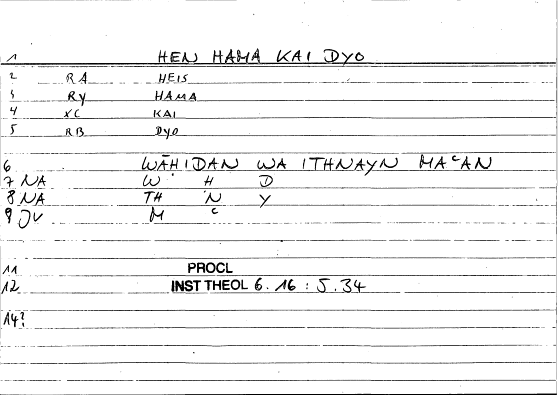 1 HEN HAMA KAI DYO
2 RA HEIS
3 RY HAMA
4 XC KAI
5 RB DYO
6 WĀHIDAN WA ITHNAYN MAᶜAN
7 NA W Ḥ D
8 NA TH N Y
9 JV M ᶜ
11 PROCL
12 INST THEOL 6.16 : 5.34
14?